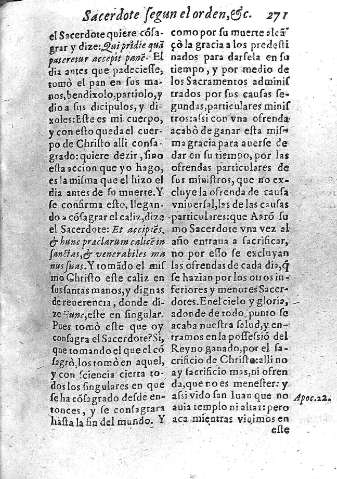 Sacerdote segun el orden, &c. 271
el Sacerdote quiere cõsa-
grar y dize: Qui pridie quã
pateretur accepit panẽ. El
dia antes que padeciesse,
tomò el pan en sus ma-
nos, bendixolo, partiolo, y
dio a sus dicipulos, y di-
xoles: Este es mi cuerpo,
y con esto queda el cuer-
po de Christo alli consa-
grado: quiere dezir, sino
esta accion que yo hago,
es la misma que el hizo el
dia antes de so muerte. Y
se confirma esto, llegan-
do a cõsagrar el caliz, dize
el Sacerdote: Et accipiẽs,
& hunc præclarum calicẽ in
sanctas, & venerabiles ma
nus suas. Y tomãdo el mis
mo Christo este caliz en
sus santas manos, y dignas
de reuerencia, donde di-
ze hunc, este en singular.
Pues tomò este que oy
consagra el Sacerdote? Si,
que tomando el que el cõ
sagrò, los tomò en aquel,
y con sciencia cierta to-
dos los singulares en que
se ha cõsagrado desde en-
tonces, y se consagrara
hasta la fin del mundo. Y
como por su muerte alcã-
çò la gracia a los predesti
nados para darsela en su
tiempo, y por medio de
los Sacramentos admini-
trados por sus causas se-
gundas, particulares minis
tros: assi con vna ofrenda
acabò de ganar esta mis-
ma gracia para auerse de
dar en su tiempo, por las
ofrendas particulares de
sus ministros, que no ex-
cluye la ofrenda de causa
vniuersal, las de las causas
particulares: que Aarõ su
mo Sacerdote vna vez al
año entraua a sacrificar,
no por esso se excluyan
las ofrendas de cada dia, q̃
se hazian por los otros in-
feriores y menores Sacer-
dotes. En el cielo y gloria,
adonde de todo, punto se
acaba nuestra salud, y en-
tramos en la possessiõ del
Reyno ganado, por el sa-
crificio de Christo: alli no
ay sacrificio mas, ni ofren
da, que no es menester: y
assi vido san Iuan que no
auia templo ni altar: pero
aca mientras viuimos en
este
Apoc. 22.